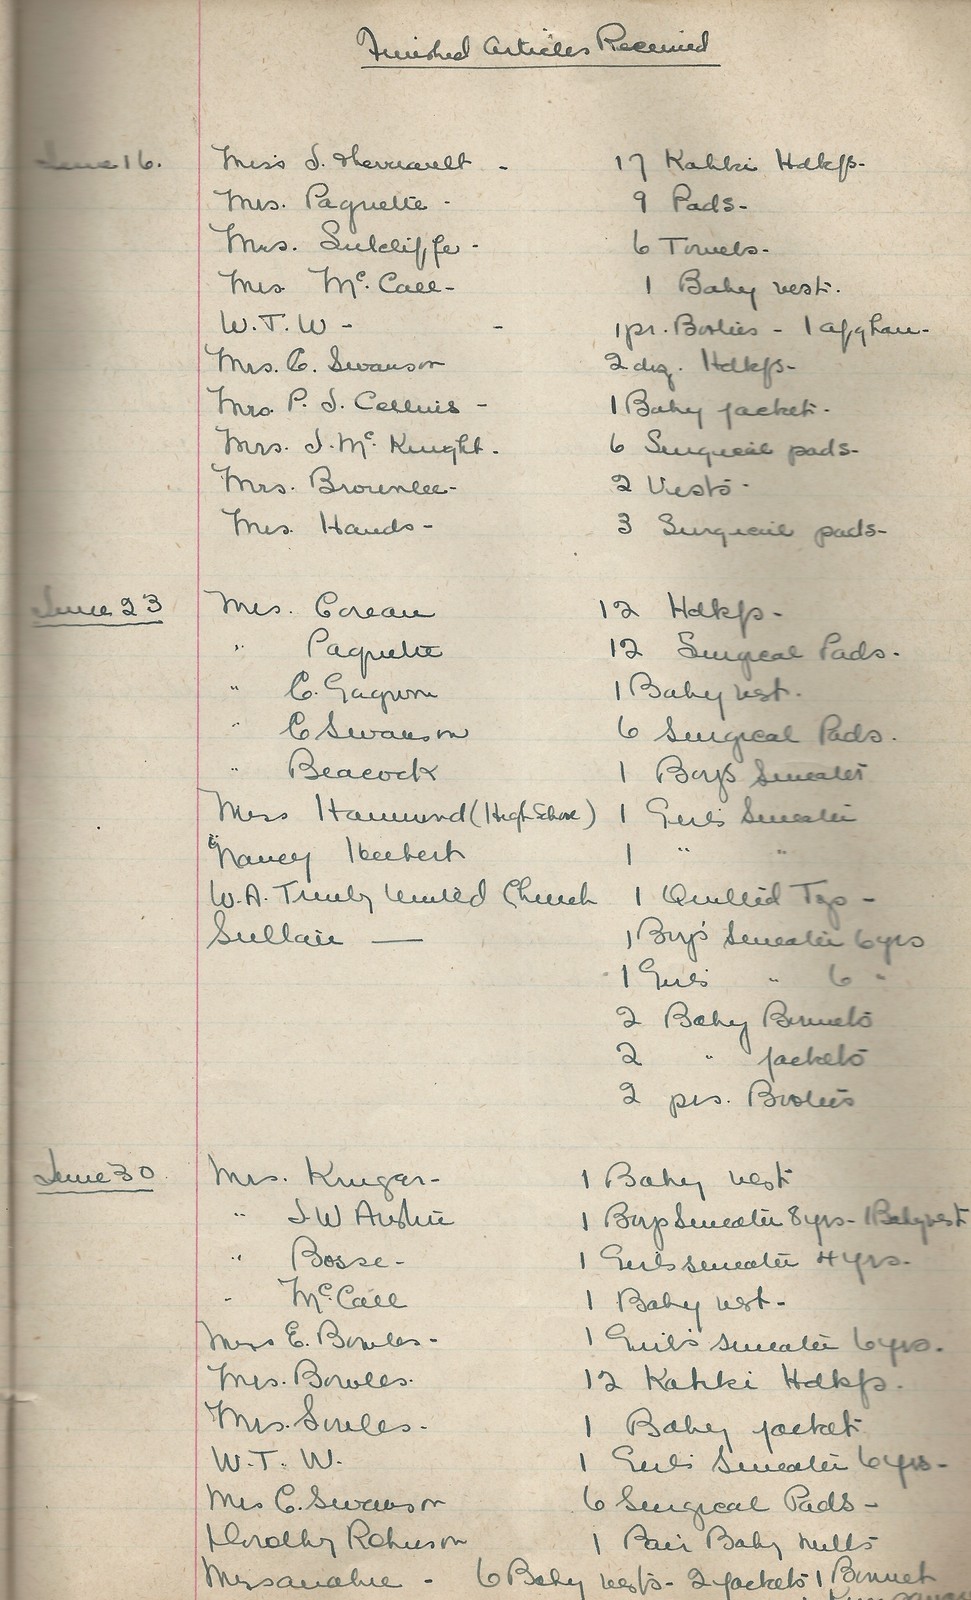 Finished Articles Received
June 16. Miss J. Therriault - 17 Kahki Hdkfs-
Mrs. Paquette - 9 Pads-
Mrs. Sutcliffe - 6 Towels-
Mrs Mc. Call- 1 Baby vest.
W.T.W - - 1 pr. Booties - 1 afghan-
Mrs. C. Swanson 2 doz. Hdkfs-
Mrs. P. J. Collins - 1 Baby jacket.
Mrs. J. Mc Knight. 6 Surgical pads-
Mrs. Brownlee- 2 Vests-
Mrs. Hands- 3 Surgical pads-
June 23 Mrs. Coreau 12 Hdkfs-
" Paquette 12 Surgical Pads.
" C. Gagnon 1 Baby vest.
" C Swanson 6 Surgical Pads.
" Beacock 1 Boy's Sweater
Miss Hammond (High School) 1 Girl's Sweater
Nancy Heebert 1 " "
W.A. Trinity United Church 1 Quilted Top -
Sultan — 1 Boy's Sweater 6 yrs
1 Girls " 6 "
2 Baby Bonnets
2 " jackets
2 prs. Booties
June 30 Mrs. Kruger- 1 Baby vest
" J.W Austin 1 Boys Sweater 8 yrs- 1 Baby vest
" Bosse- 1 Girls sweater 4 yrs.
" Mc Call 1 Baby vest-
Miss E. Bowles- 1 Girl's sweater 6 yrs.
Mrs. Bowles. 12 Kahki Hdkfs.
Mrs. Soules- 1 Baby jacket
W.T. W. 1 Girls Sweater 6 yrs-
Mrs C. Swanson 6 Surgical Pads-
Dorothy Robinson 1 Pair Baby mitts
Missanabie - 6 Baby vests- 2 jackets 1 Bonnet